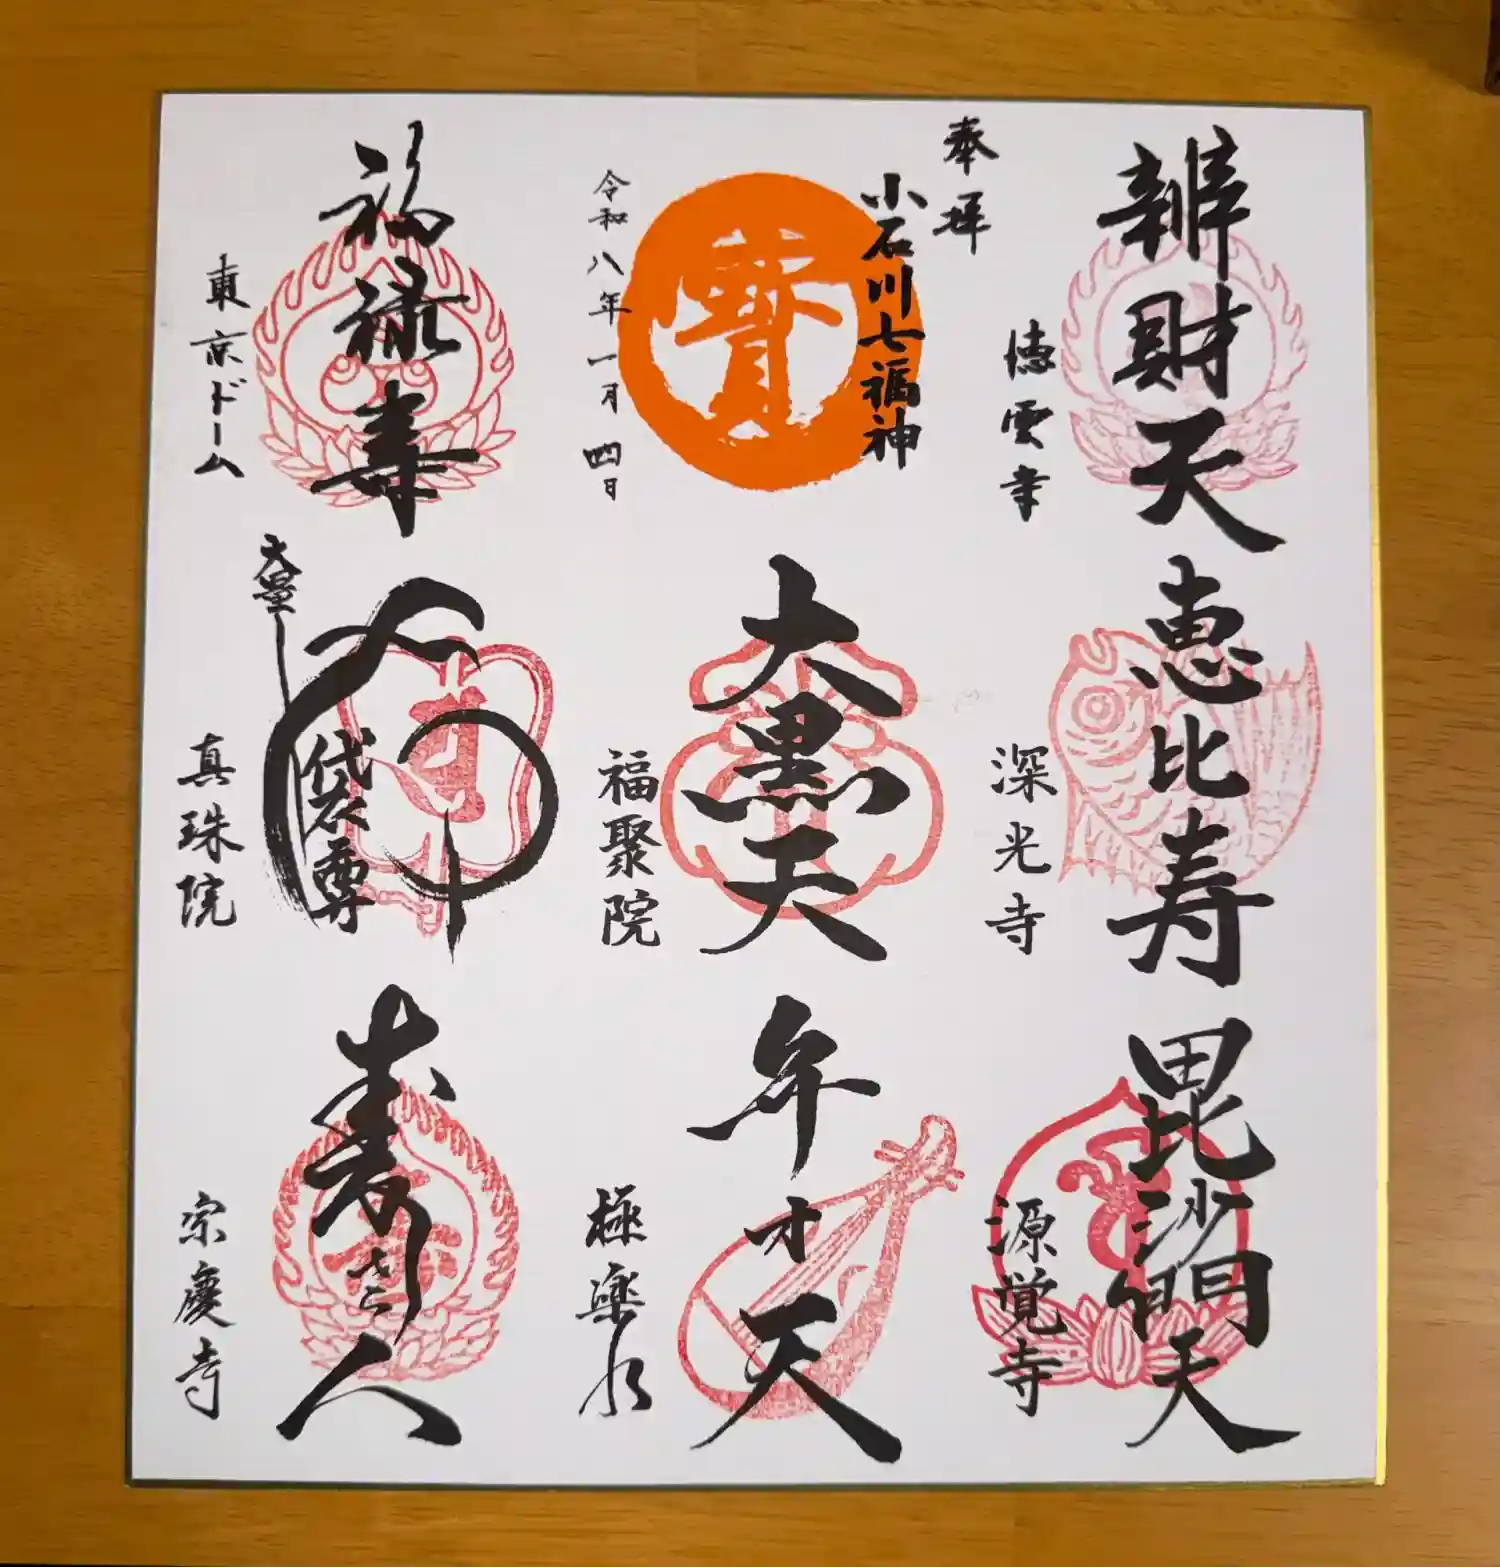 奉拝
小石川七福神
寶
令和八年一月四日
辨財天
徳雲寺
恵比寿
深光寺
毘沙門天
源覚寺
大黒天
福聚院
弁才天
極楽水
福禄寿
東京ドーム
袋尊
真珠院
寿老人
宗慶寺